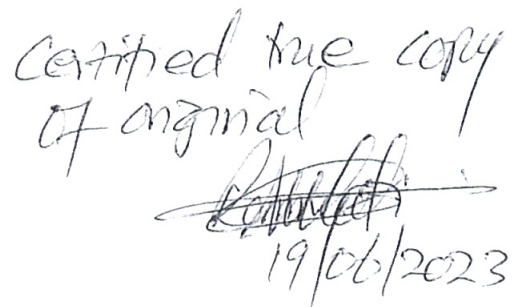 Certified true copy
of original
19/06/2023